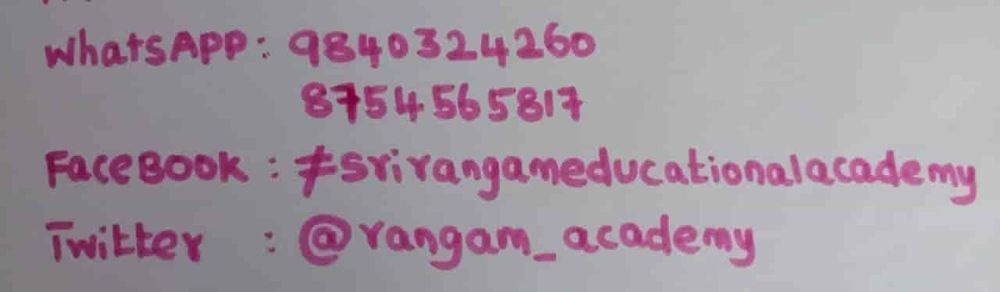 WhatsAPP: 9840324260
8754565817
FaceBook : #srirangameducationalacademy
Twitter : @rangam_academy